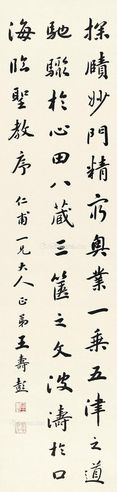 探賾妙門精窮奧業一乘五津之道
馳驟於心田八藏三篋之文波濤於口
海臨聖教序 仁甫一兄大人正弟王壽彭